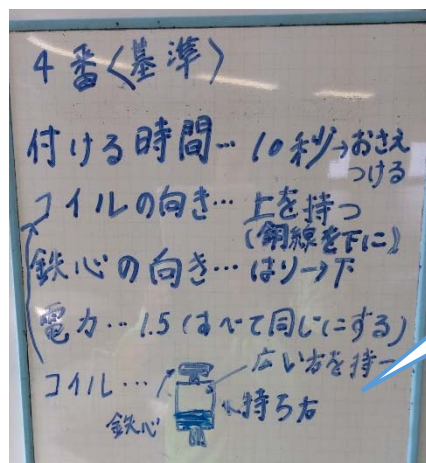 4番〈基準〉
付ける時間…10秒→おさえ
つける
コイルの向き…上を持つ
(銅線を下に)
鉄心の向き…はり→下
電力…1.5(すべて同じにする)
コイル…
広い方を持つ
持ち方
鉄心